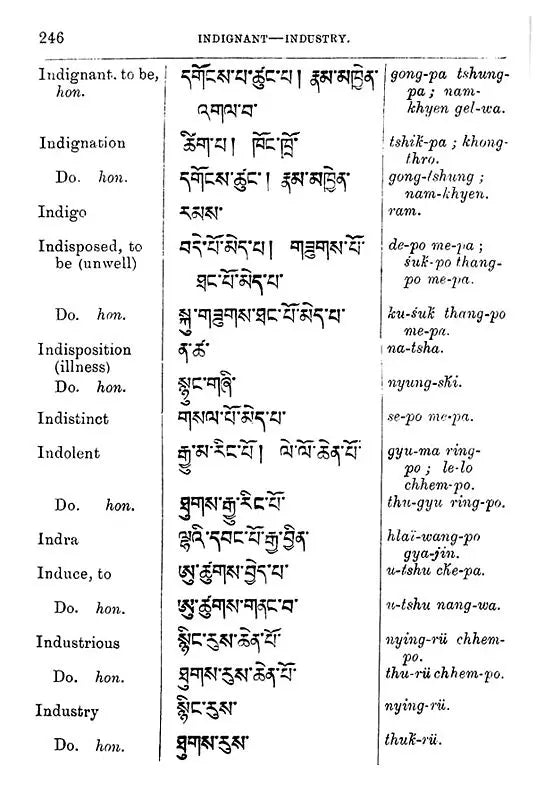 246 INDIGNANT—INDUSTRY.
Indignant, to be, དགོངས་པ་ཚུང་པ། རྣམ་མཁྱེན་ gong-pa tshung-
hon. འགལ་བ་ pa ; nam-
khyen gel-wa.
Indignation ཚིག་པ། ཁོང་ཁྲོ་ tshik̆-pa ; khong-
thro.
Do. hon. དགོངས་ཚུང་། རྣམ་མཁྱེན་ gong-tshung ;
nam-khyen.
Indigo རམས་ ram.
Indisposed, to བདེ་པོ་མེད་པ། གཟུགས་པོ་ de-po me-pa ;
be (unwell) ཐང་པོ་མེད་པ་ śuk̆-po thang-
po me-pa.
Do. hon. སྐུ་གཟུགས་ཐང་པོ་མེད་པ་ ku-śuk̆ thang-po
me-pa.
Indisposition ན་ཚ་ na-tsha.
(illness)
Do. hon. སྙུང་གཞི་ nyung-s̆hi.
Indistinct གསལ་པོ་མེད་པ་ se-po me-pa.
Indolent རྒྱུ་མ་རིང་པོ། ལེ་ལོ་ཆེན་པོ་ gyu-ma ring-
po ; le-lo
chhem-po.
Do. hon. ཐུགས་རྒྱུ་རིང་པོ་ thu-gyu ring-po.
Indra ལྷའི་དབང་པོ་རྒྱ་བྱིན་ hlaï-wang-po
gya-jin.
Induce, to ཨུ་ཚུགས་བྱེད་པ་ u-tshu c̆he-pa.
Do. hon. ཨུ་ཚུགས་གནང་བ་ u-tshu nang-wa.
Industrious སྙིང་རུས་ཆེན་པོ་ nying-rü chhem-
po.
Do. hon. ཐུགས་རུས་ཆེན་པོ་ thu-rü chhem-po.
Industry སྙིང་རུས་ nying-rü.
Do. hon. ཐུགས་རུས་ thuk̆-rü.